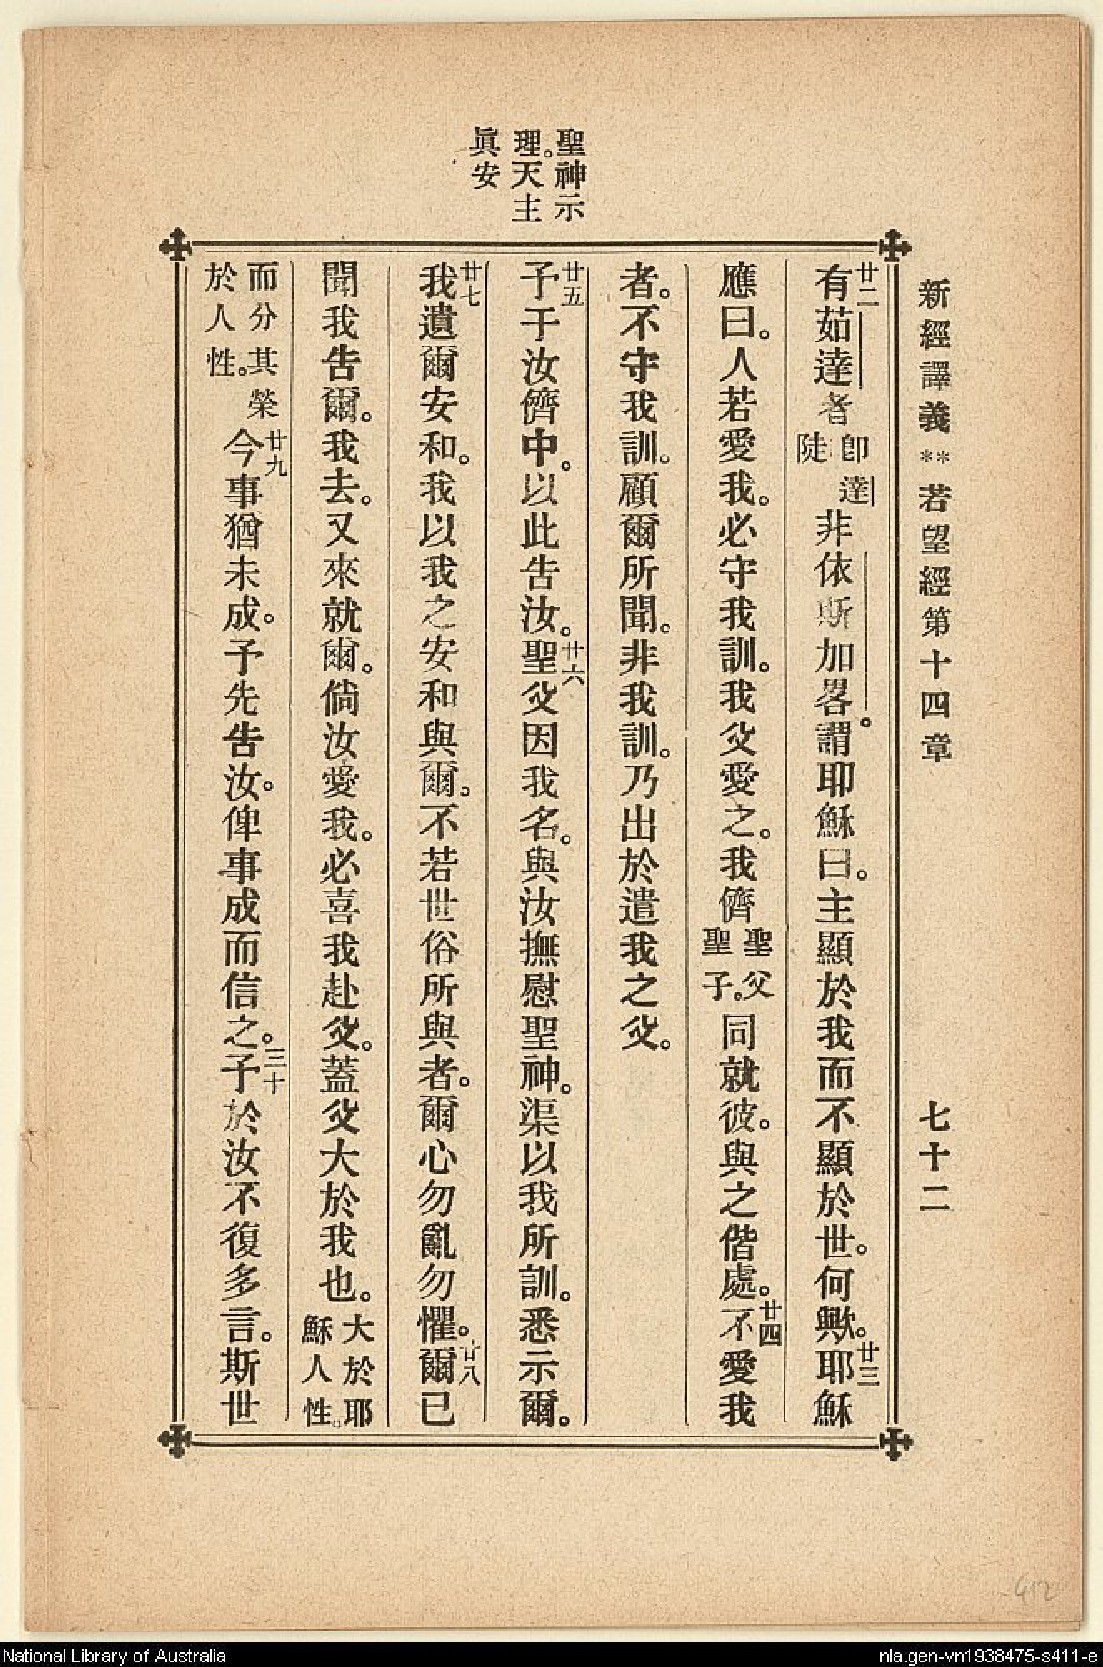 新經譯義**若望經第十四章 七十二
聖神示
理。天主
眞安
廿二有茹達者卽達陡非依斯加畧。謂耶穌曰。主顯於我而不顯於世。何歟。廿三耶穌
應曰。人若愛我。必守我訓。我父愛之。我儕聖父聖子。同就彼。與之偕處。廿四不愛我
者。不守我訓。顧爾所聞。非我訓。乃出於遣我之父。
廿五予于汝儕中。以此告汝。廿六聖父因我名。與汝撫慰聖神。渠以我所訓。悉示爾。
廿七我遺爾安和。我以我之安和與爾。不若世俗所與者。爾心勿亂勿懼。廿八爾已
聞我告爾。我去。又來就爾。倘汝愛我。必喜我赴父。蓋父大於我也。大於耶穌人性。
而分其榮於人性。廿九今事猶未成。予先告汝。俾事成而信之。三十予於汝不復多言。斯世
412
National Library of Australia
nla.gen-vn1938475-s411-e